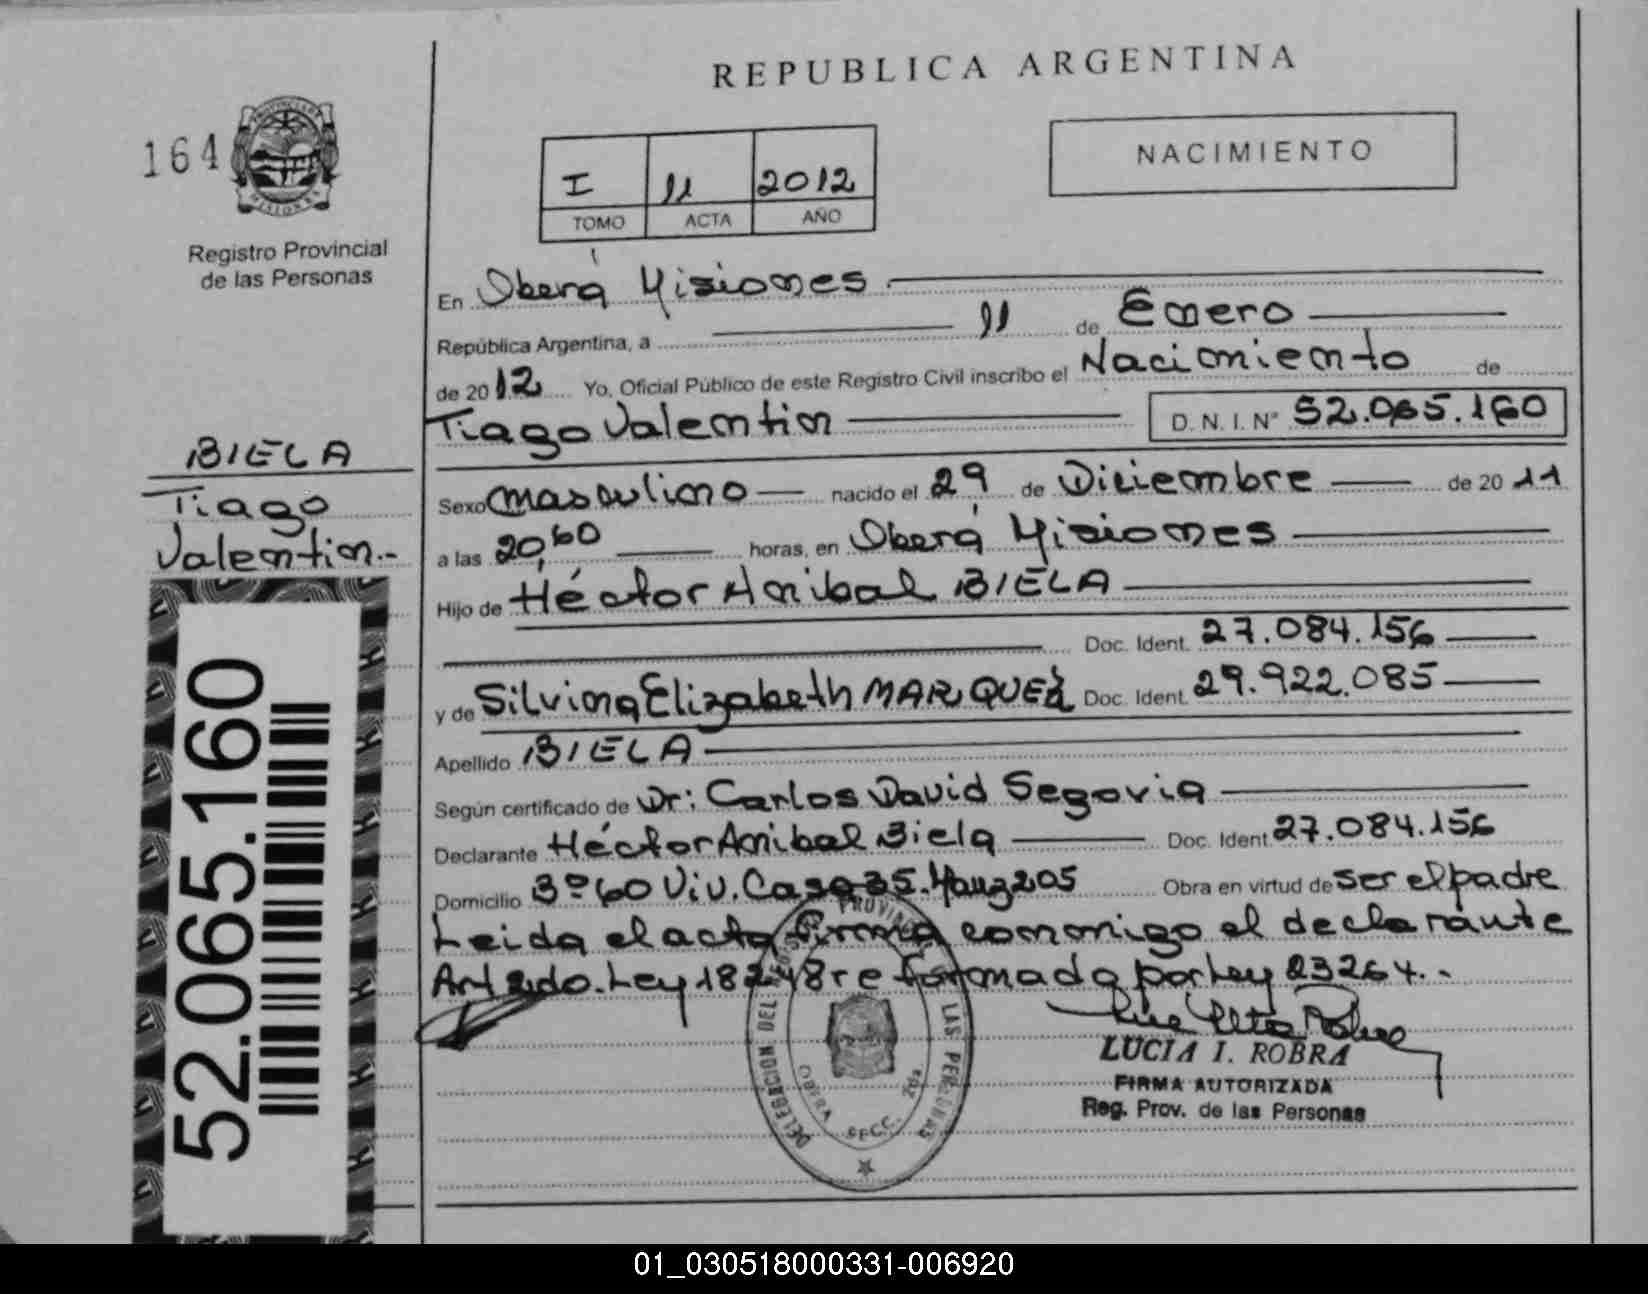 REPUBLICA ARGENTINA
164
I 11 2012
TOMO ACTA AÑO
NACIMIENTO
Registro Provincial
de las Personas
En Oberá Misiones
República Argentina, a 11 de Enero
de 2012 Yo, Oficial Público de este Registro Civil inscribo el Nacimiento de
Tiago Valentin D.N.I. N° 52.065.160
BIELA
Tiago
Valentin.-
Sexo Masculino nacido el 29 de Diciembre de 2011
a las horas, en Oberá Misiones
Hijo de Héctor Anibal BIELA
Doc. Ident. 27.084.156
y de Silvina Elizabeth MARQUEZ Doc. Ident. 29.922.085
Apellido BIELA
Según certificado de Dr: Carlos David Segovia
Declarante Héctor Anibal Biela Doc. Ident. 27.084.156
Domicilio Viv. Casa 35. Manz 205 Obra en virtud de ser el padre
Leida el acta firma conmigo el declarante
Ley 18248 reformada por Ley 23264.-
LUCIA I. ROBRA
FIRMA AUTORIZADA
Reg. Prov. de las Personas
DELEGACION DEL LAS PERSONAS
OBERA SECC. 2da.
52.065.160
01_030518000331-006920